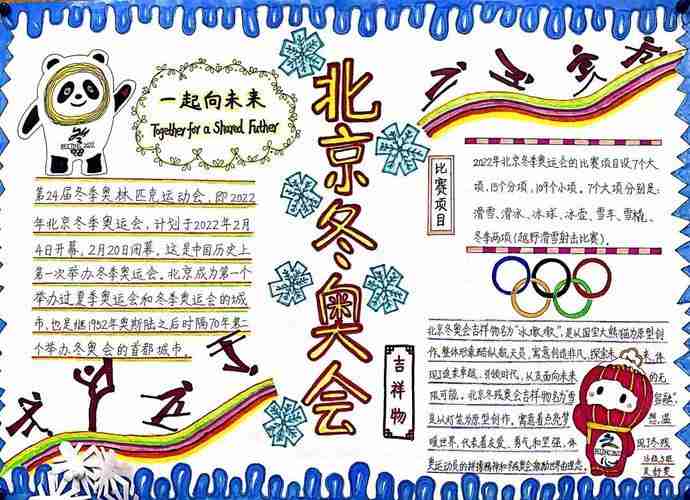 一起向未来
Together for a Shared Futher
北京冬奥会
BEIJING 2022
第24届冬季奥林匹克运动会,即2022
年北京冬季奥运会,计划于2022年2月
4日开幕,2月20日闭幕。这是中国历史上
第一次举办冬季奥运会。北京成为第一个
举办过夏季奥运会和冬季奥运会的城
市,也是继1952年奥斯陆之后时隔70年第二
个举办冬奥会的首都城市。
比赛项目
2022年北京冬季奥运会的比赛项目设7个大
项,15个分项,109个小项。7个大项分别是:
滑雪、滑冰、冰球、冰壶、雪车、雪橇、
冬季两项(越野滑雪射击比赛)。
吉祥物
北京冬奥会吉祥物名为“冰墩墩”,是从国宝大熊猫为原型创
作,整体形象酷似航天员,寓意创造非凡、探索未来,体
现了追求卓越、引领时代,以及面向未来的无
限可能。北京冬残奥会吉祥物名为雪容融”,
是从灯笼为原型创作,寓意着点亮梦想,温
暖世界,代表着友爱、勇气和坚强,体现了冬残
奥运动员的拼搏精神和